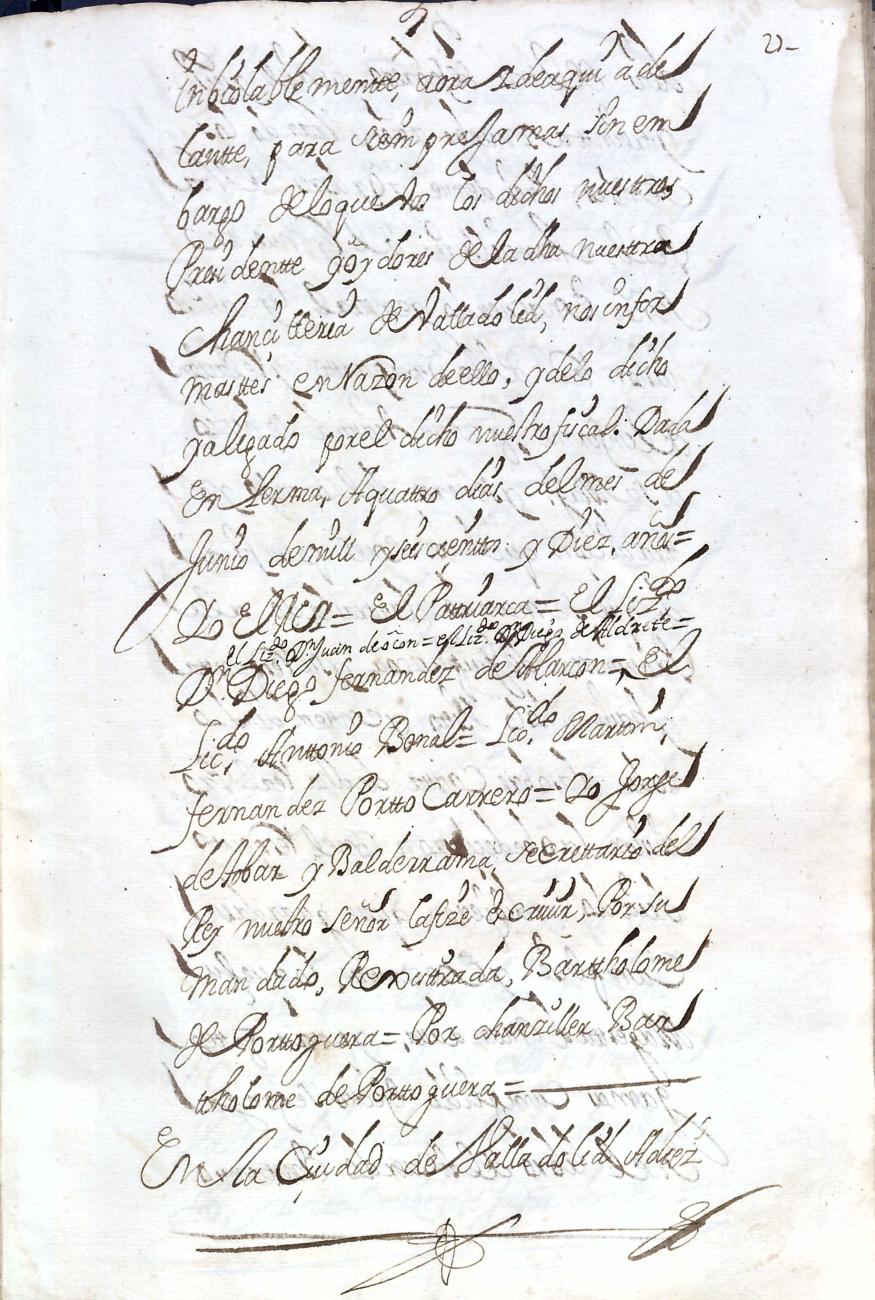 21-
Inbiolablementte, aora y de aqui a de
lantte, para siempre Jamas sin em
bargo de lo que Vos los dichos nuestros
Presidentte y oydores de la dha nuestra
Chancilleria de Valladolid, nos infor
masttes en Razon de ello, y de lo dicho
y alegado por el dicho nuestro fiscal. Dada
En lerma, A quattro dias del mes de
Junio de mill y seiscientos y Diez, años=
Yo El Rey = El Patriarca = El Lizdo
el Lizdo Dn Juan de ocon = el Lizdo Dn Diego de Aldrete=
Dn Diego fernandez de Alarcon = El
Licdo Anttonio Bonal = Licdo Martin
fernandez Portto Carrero = Yo Jorge
de tobar y Balderrama secrettario del
Rey nuestro señor la fize escriuir, Por su
mandado, Rexistrada, Barttholome
de Porttoguera = Por chanziller Bar
ttholome de Porttoguera =
En la Ciudad de Valladolid A diez